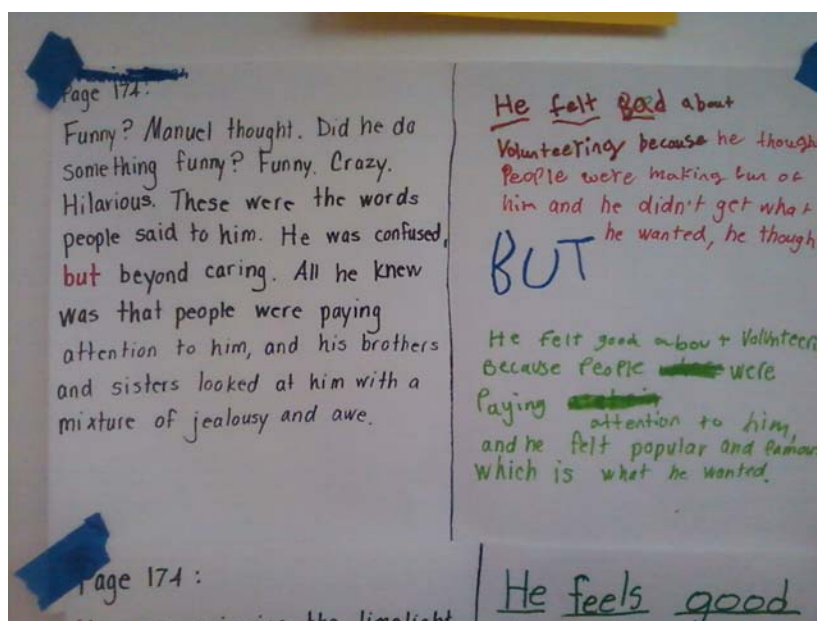 Page 174:
Funny? Manuel thought. Did he do
something funny? Funny. Crazy.
Hilarious. These were the words
people said to him. He was confused,
but beyond caring. All he knew
was that people were paying
attention to him, and his brothers
and sisters looked at him with a
mixture of jealousy and awe.
He felt bad about
Volunteering because he though
People were making fun of
him and he didn't get what
he wanted, he though
BUT
He felt good about Volunteeri
Because People were
Paying
attention to him,
and he felt popular and famou
which is what he wanted.
Page 174:
the limelight
He feels good